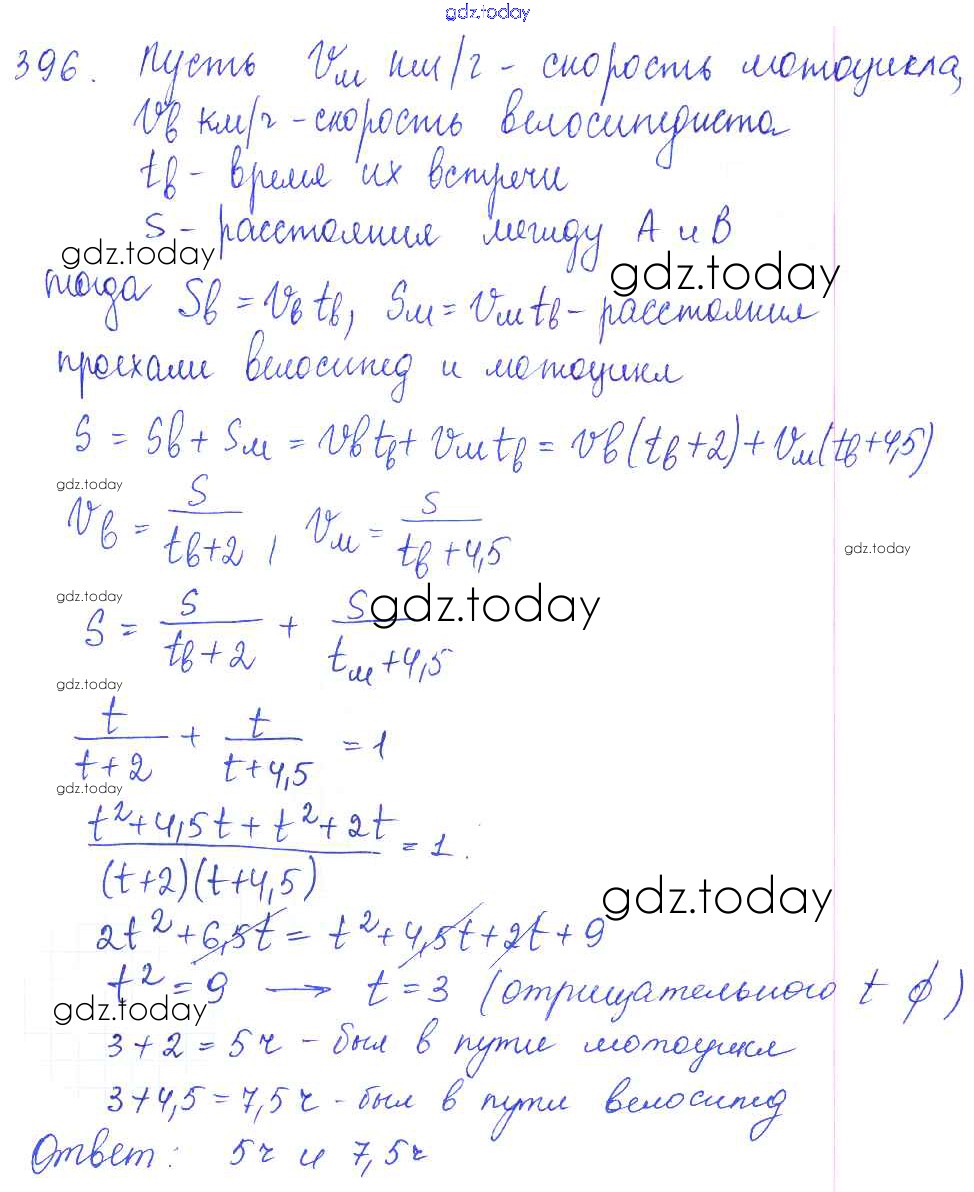 gdz.today
396. Пусть Vм км/г - скорость мотоцикла,
Vв км/ч - скорость велосипедиста
tв - время их встречи
S - расстояния между А и В
gdz.today gdz.today
тогда Sв = Vв tв, Sм = Vм tв - расстояния
проехали велосипед и мотоцикл
S = Sв + Sм = Vв tв + Vм tв = Vв (tв + 2) + Vм (tв + 4,5)
gdz.today
Vв = S / (tв + 2), Vм = S / (tв + 4,5)
gdz.today
gdz.today gdz.today
S = S / (tв + 2) + S / (tм + 4,5)
gdz.today
t / (t + 2) + t / (t + 4,5) = 1
gdz.today
(t² + 4,5t + t² + 2t) / ((t + 2)(t + 4,5)) = 1.
gdz.today
2t² + 6,5t = t² + 4,5t + 2t + 9
t² = 9 → t = 3 (отрицательного t ∅)
gdz.today
3 + 2 = 5 ч - был в пути мотоцикл
3 + 4,5 = 7,5 ч - был в пути велосипед
Ответ: 5ч и 7,5ч